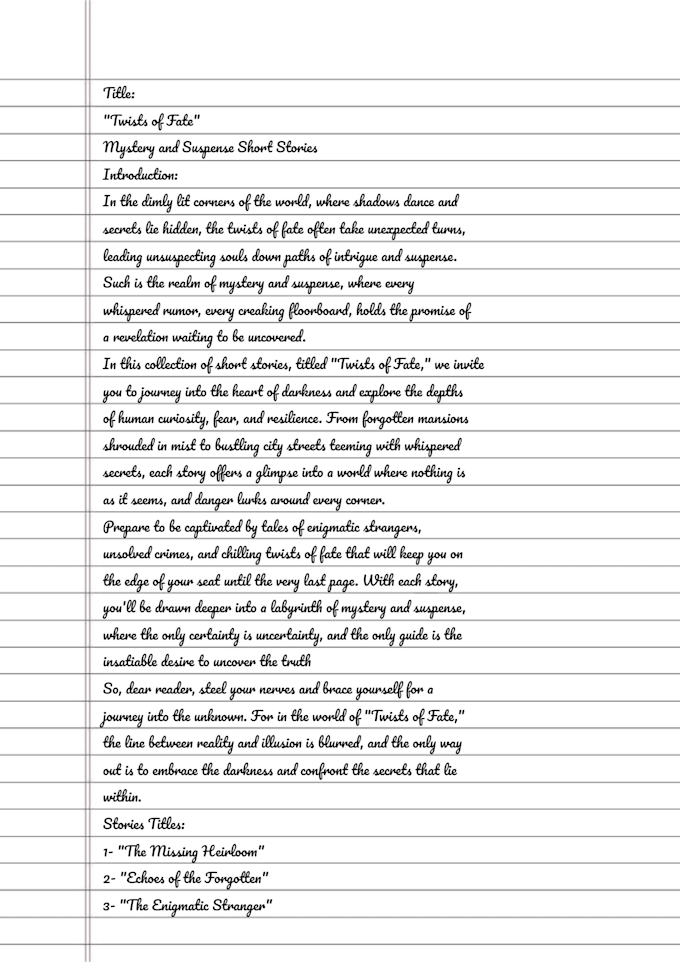 Title:
"Twists of Fate"
Mystery and Suspense Short Stories
Introduction:
In the dimly lit corners of the world, where shadows dance and
secrets lie hidden, the twists of fate often take unexpected turns,
leading unsuspecting souls down paths of intrigue and suspense.
Such is the realm of mystery and suspense, where every
whispered rumor, every creaking floorboard, holds the promise of
a revelation waiting to be uncovered.
In this collection of short stories, titled "Twists of Fate," we invite
you to journey into the heart of darkness and explore the depths
of human curiosity, fear, and resilience. From forgotten mansions
shrouded in mist to bustling city streets teeming with whispered
secrets, each story offers a glimpse into a world where nothing is
as it seems, and danger lurks around every corner.
Prepare to be captivated by tales of enigmatic strangers,
unsolved crimes, and chilling twists of fate that will keep you on
the edge of your seat until the very last page. With each story,
you'll be drawn deeper into a labyrinth of mystery and suspense,
where the only certainty is uncertainty, and the only guide is the
insatiable desire to uncover the truth
So, dear reader, steel your nerves and brace yourself for a
journey into the unknown. For in the world of "Twists of Fate,"
the line between reality and illusion is blurred, and the only way
out is to embrace the darkness and confront the secrets that lie
within.
Stories Titles:
1- "The Missing Heirloom"
2- "Echoes of the Forgotten"
3- "The Enigmatic Stranger"